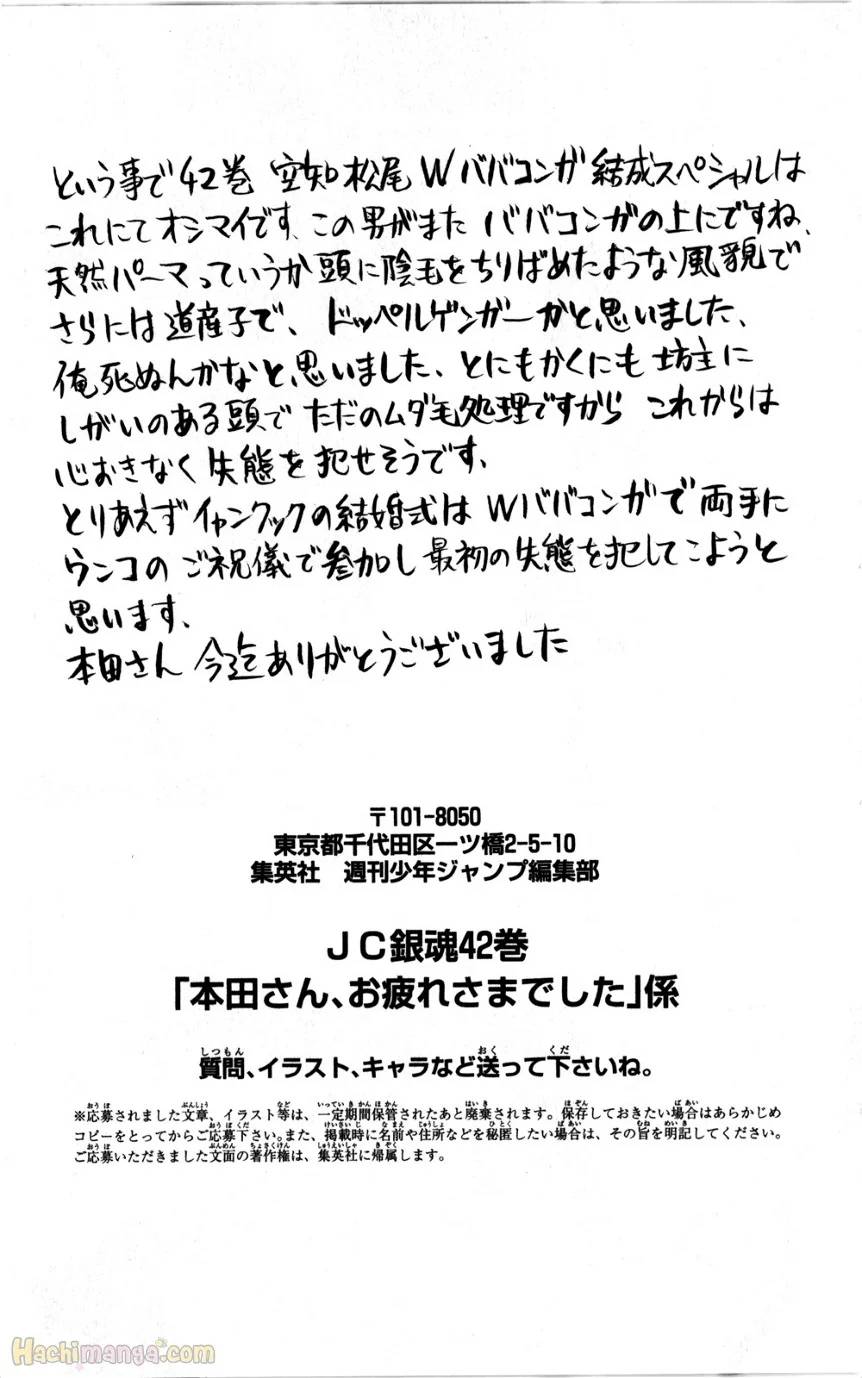 という事で42巻 空知松尾Wババコンガ結成スペシャルは
これにてオシマイです、この男がまた ババコンガの上にですね、
天然パーマっていうか頭に陰毛をちりばめたような風貌で
さらには道産子で、ドッペルゲンガーかと思いました、
俺死ぬんかなと思いました、とにもかくにも坊主に
しがいのある頭でただのムダ毛処理ですから これからは
心おきなく失態を犯せそうです、
とりあえずイャンクックの結婚式はWババコンガで両手に
ウンコのご祝儀で参加し最初の失態を犯してこようと
思います、
本田さん 今迄ありがとうございました
〒101-8050
東京都千代田区一ツ橋2-5-10
集英社 週刊少年ジャンプ編集部
JC銀魂42巻
「本田さん、お疲れさまでした」係
質問、イラスト、キャラなど送って下さいね。
※応募されました文章、イラスト等は、一定期間保管されたあと廃棄されます。保存しておきたい場合はあらかじめ
コピーをとってからご応募下さい。また、掲載時に名前や住所などを秘匿したい場合は、その旨を明記してください。
ご応募いただきました文面の著作権は、集英社に帰属します。
Hachimanga.com